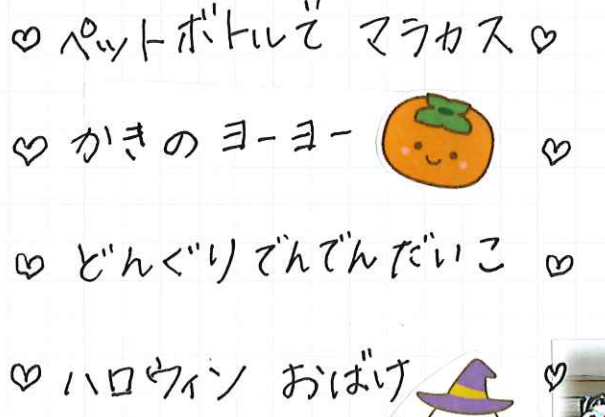 ♡ ペットボトルで マラカス ♡
♡ かきの ヨーヨー ♡
♡ どんぐりでんでんだいこ ♡
♡ ハロウィン おばけ ♡